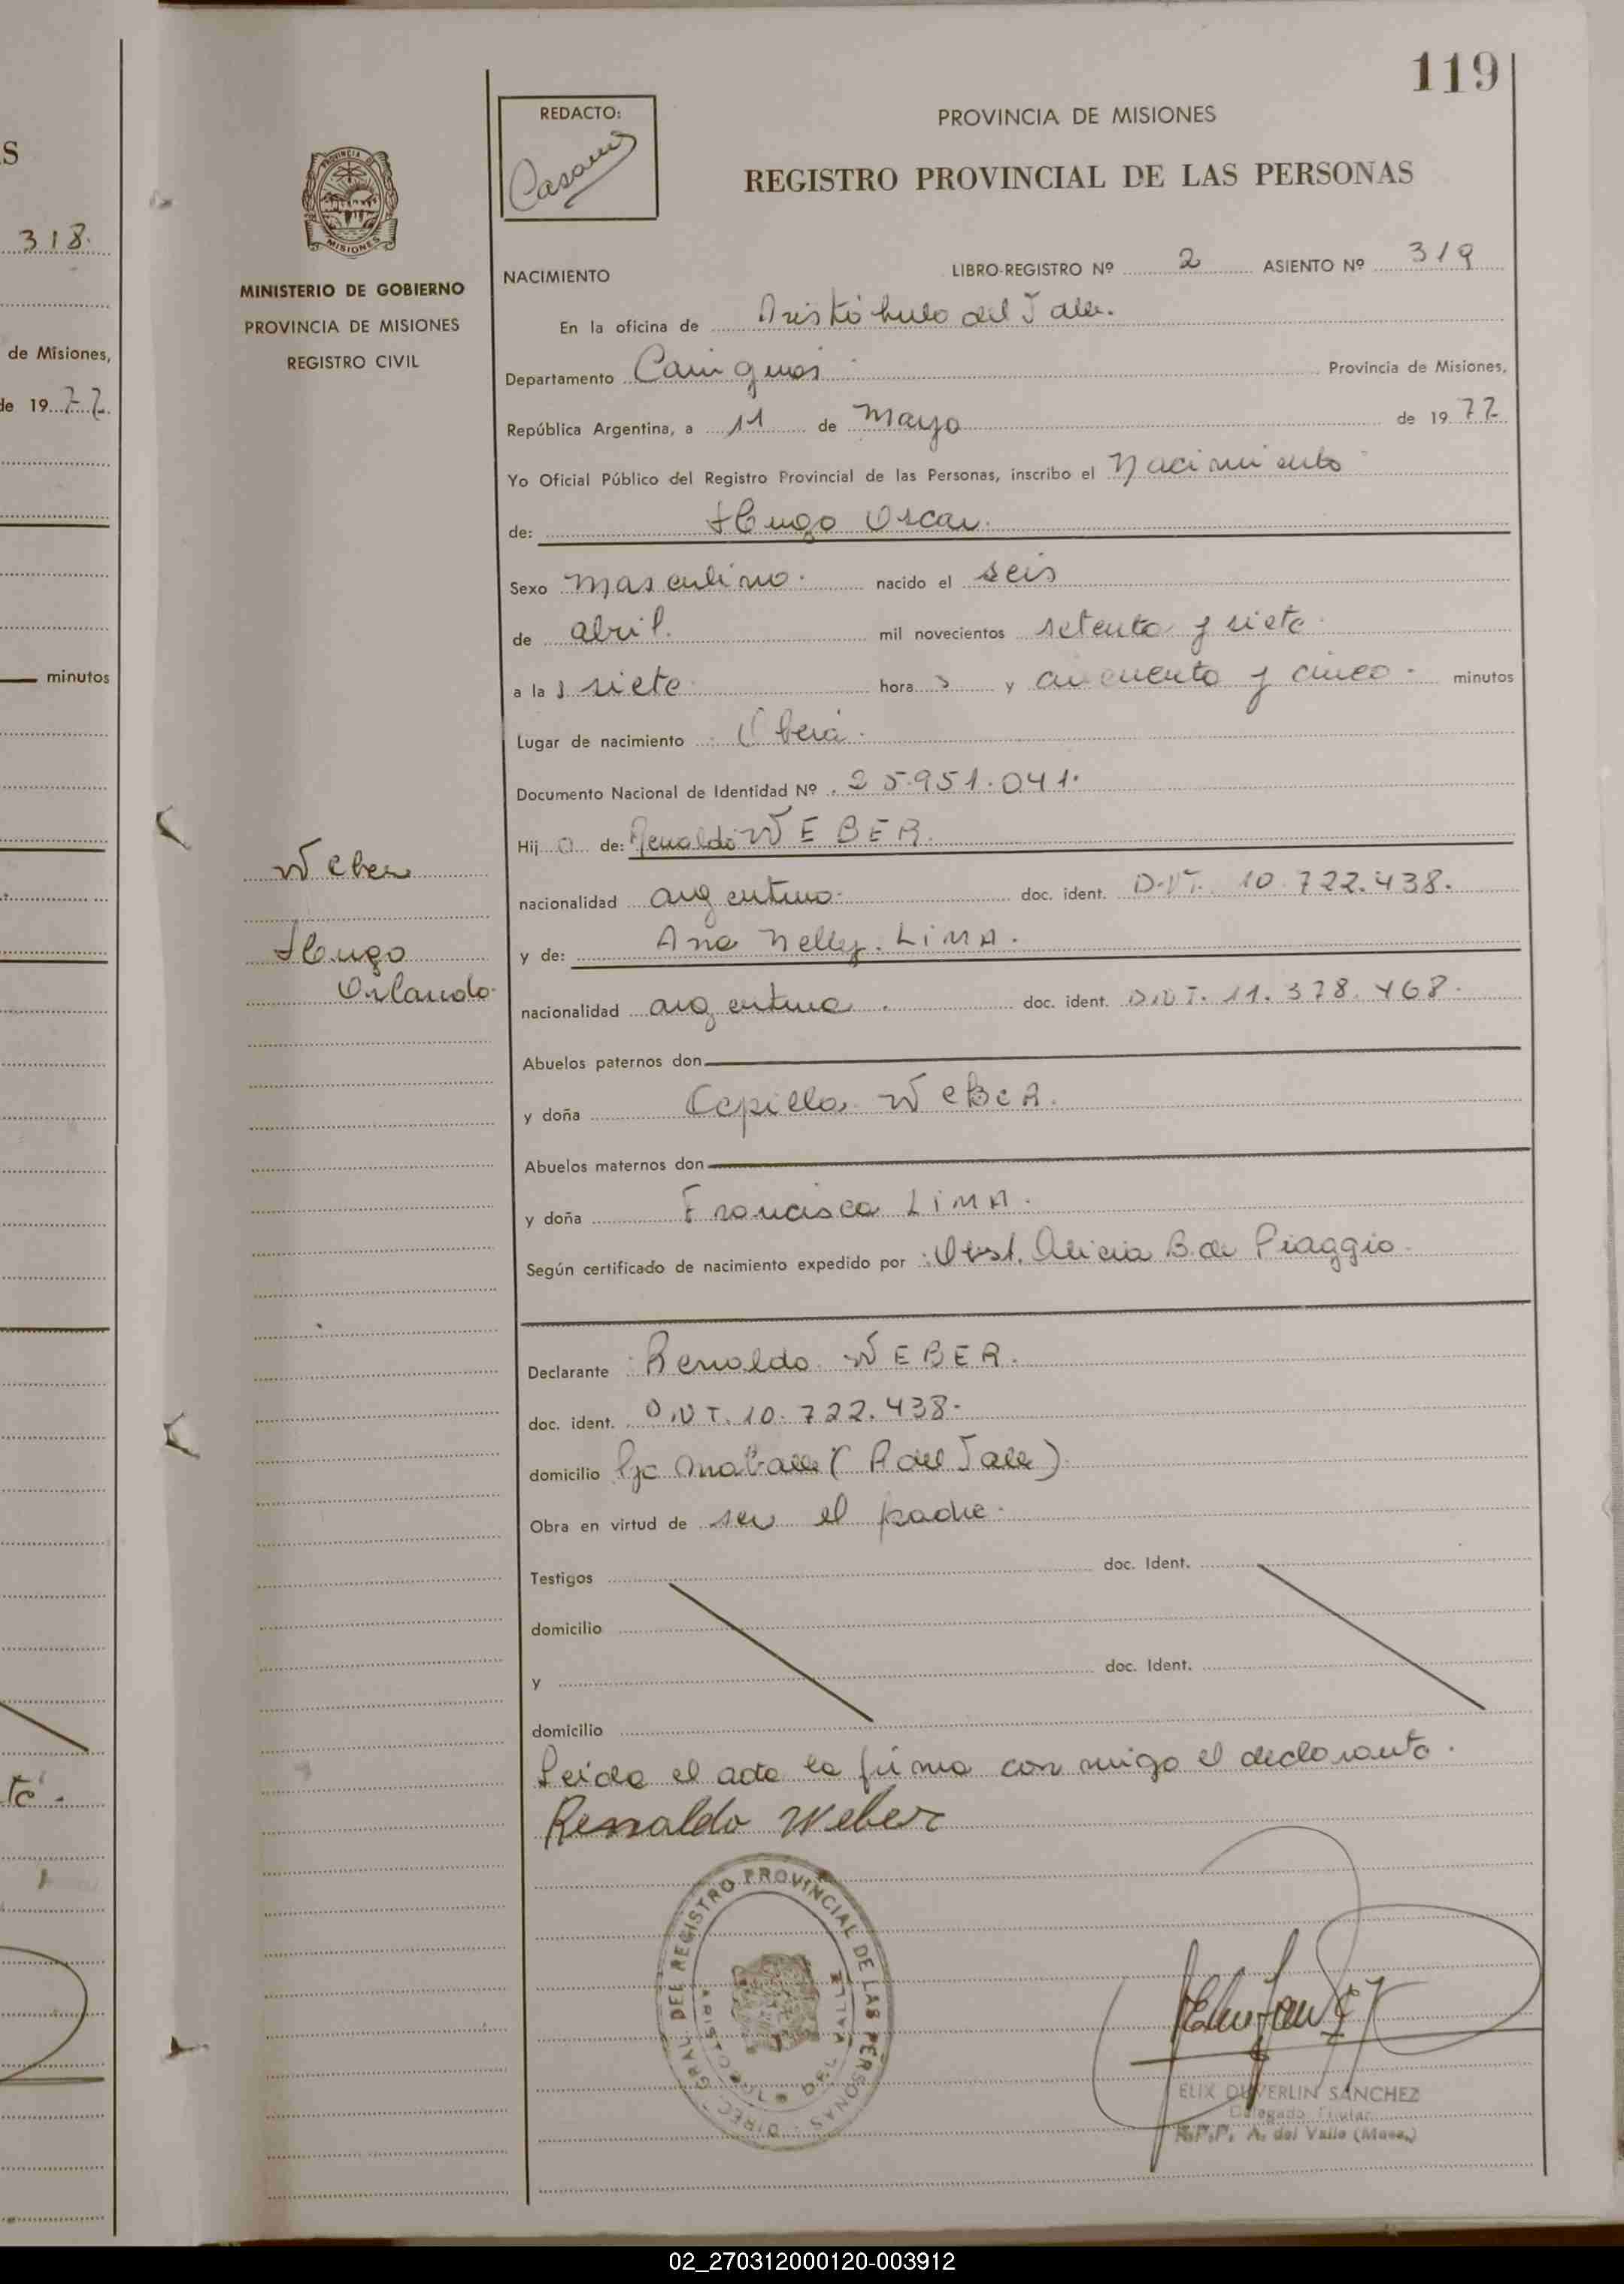 119
REDACTO:
PROVINCIA DE MISIONES
REGISTRO PROVINCIAL DE LAS PERSONAS
S
318.
PROVINCIA DE
MISIONES
MINISTERIO DE GOBIERNO
PROVINCIA DE MISIONES
REGISTRO CIVIL
NACIMIENTO
LIBRO-REGISTRO Nº 2 ASIENTO Nº 319
En la oficina de Aristóbulo del Valle.
de Misiones,
Departamento Cainguás Provincia de Misiones,
de 1977.
República Argentina, a 11 de Mayo de 1977
Yo Oficial Público del Registro Provincial de las Personas, inscribo el Nacimiento
de: Hugo Oscar.
Sexo masculino. nacido el seis
de abril. mil novecientos setenta y siete.
minutos
a las siete hora s y cincuenta y cinco. minutos
Lugar de nacimiento Oberá.
Documento Nacional de Identidad Nº 25.951.041.
Hij o de: Renaldo WEBER.
Weber
nacionalidad argentino. doc. ident. D.N.I. 10.722.438.
y de: Ana Nelly. LIMA.
Hugo
Orlando.
nacionalidad argentina. doc. ident. D.N.I. 11.378.468.
Abuelos paternos don
y doña WEBER.
Abuelos maternos don
y doña Francisca LIMA.
Según certificado de nacimiento expedido por Obst. Alicia B. de Piaggio.
Declarante Renaldo WEBER.
doc. ident. D.N.I. 10.722.438.
domicilio (A del Valle)
Obra en virtud de ser el padre.
Testigos doc. Ident.
domicilio
y doc. Ident.
domicilio
Leida el acta la firma conmigo el declarante.
Renaldo Weber
DIREC. GRAL. DEL REGISTRO PROVINCIAL DE LAS PERSONAS
DEL VALLE
ELIX DUVERLIN SANCHEZ
Delegado Titular
R.P.P. A. del Valle (Mnes.)
02_270312000120-003912